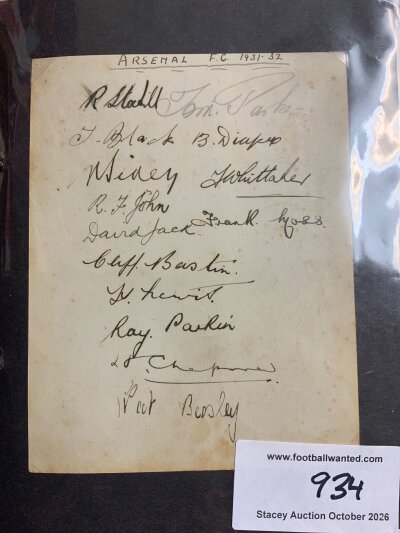 ARSENAL F.C. 1931-32
Tom. Parker
T. Black B. Diaper
J Whittaker
R. F. John
David Jack. Frank Moss.
Cliff Bastin.
H. Lewis.
Ray. Parkin
Chapman
Pat Beasley
www.footballwanted.com
934
Stacey Auction October 2026